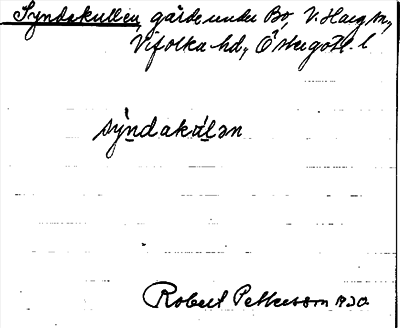 Syndakullen, gård under Bo, V. Harg sn,
Vifolka hd, Östergötl. l
sýndakùlən
Robert Petterson 1930